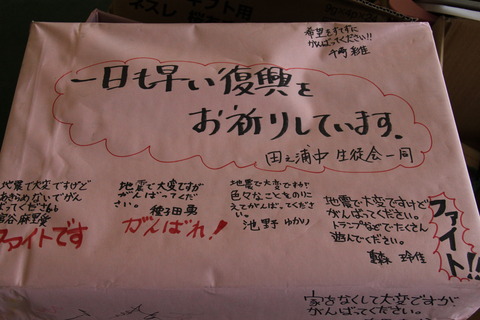 ギフト用
ネスレ
希望をすてずに
がんばってください!!
千崎 彩雅
一日も早い復興を
お祈りしています.
田之浦中 生徒会一同
地震で大変ですけど
あきらめないでがん
ばってください。
宮谷 麻里愛
ファイトです
地震で大変ですが
がんばってくだ
さい。
種子田 奥
がんばれ!
地震で大変ですが
色々なことをのりこ
えてがんばってくださ
い。
池野 ゆかり
地震で大変ですけど
がんばってください。
トランプなどでたくさん
遊んでください。
玲佳
ファイト!!
家をなくして大変ですが
がんばってください